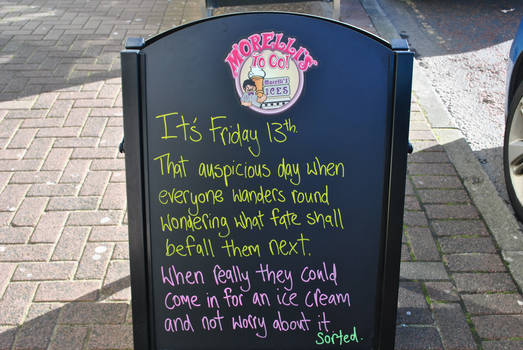 MORELLI'S
TO GO!
Morelli's
ICES
It's Friday 13th.
That auspicious day when
everyone wanders round
wondering what fate shall
befall them next.
When really they could
come in for an ice cream
and not worry about it.
Sorted.